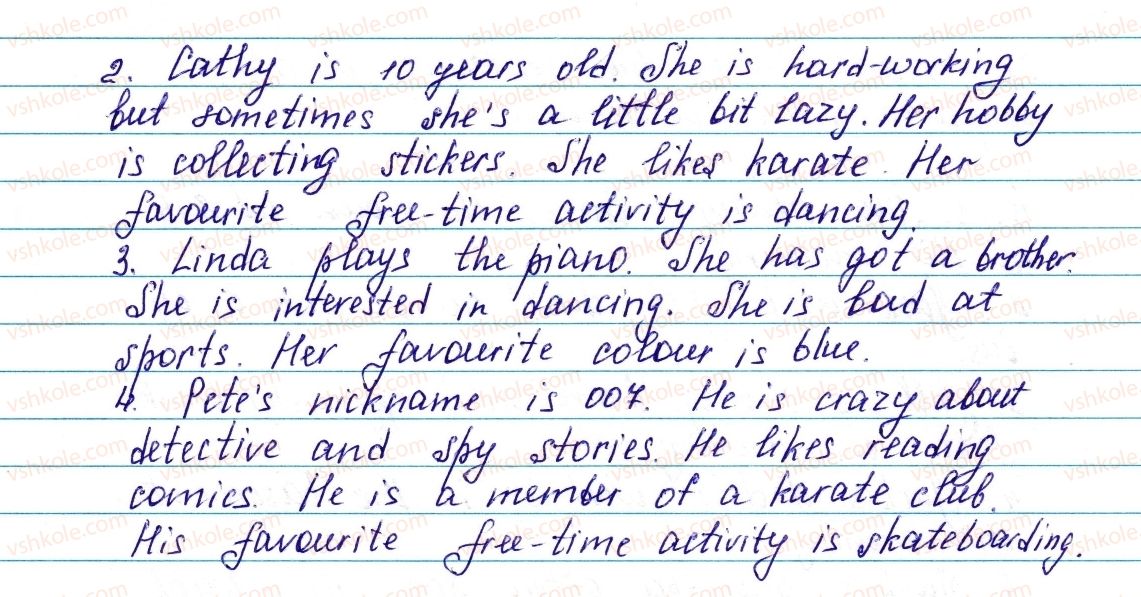 2. Cathy is 10 years old. She is hard-working
but sometimes she's a little bit lazy. Her hobby
is collecting stickers. She likes karate. Her
favourite free-time activity is dancing.
3. Linda plays the piano. She has got a brother.
She is interested in dancing. She is bad at
sports. Her favourite colour is blue.
4. Pete's nickname is 007. He is crazy about
detective and spy stories. He likes reading
comics. He is a member of a karate club.
His favourite free-time activity is skateboarding.